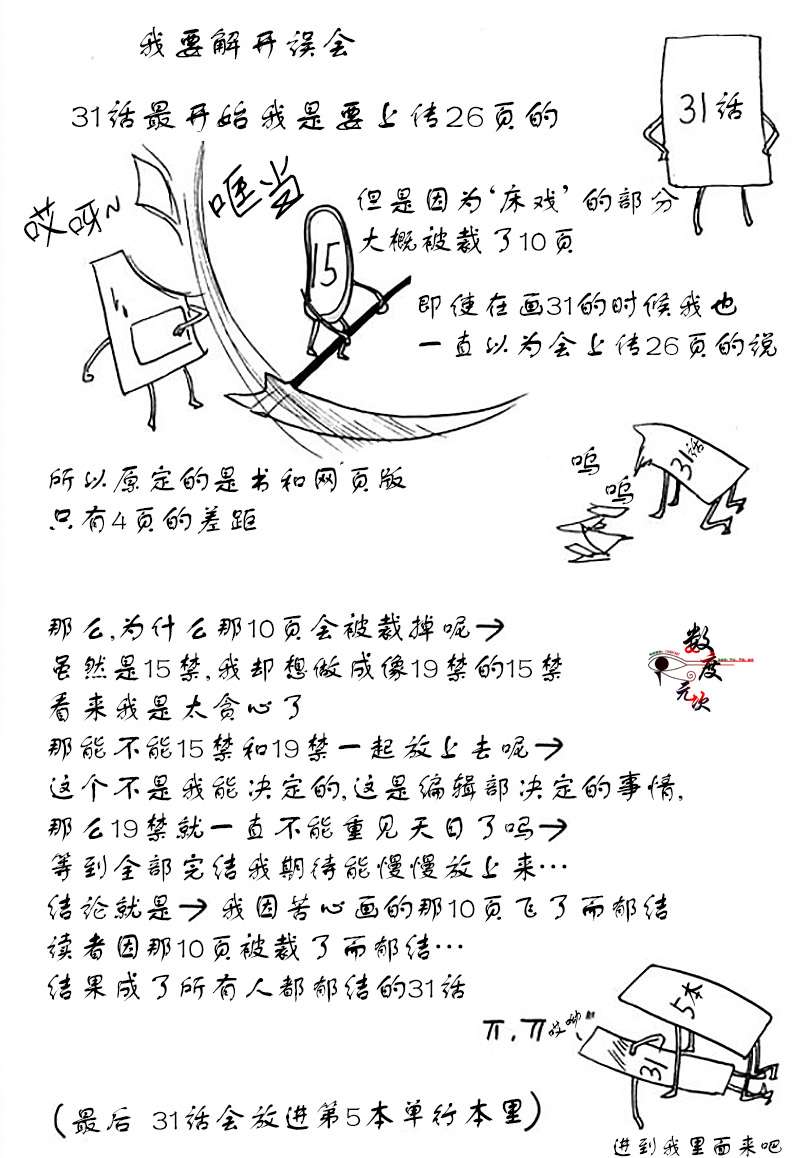 我要解开误会
31话最开始我是要上传26页的
31话
哎呀~
哐当
15
但是因为‘床戏’的部分
大概被裁了10页
即使在画31的时候我也
一直以为会上传26页的说
所以原定的是书和网页版
只有4页的差距
呜
呜
31话
那么,为什么那10页会被裁掉呢→
虽然是15禁,我却想做成像19禁的15禁
看来我是太贪心了
那能不能15禁和19禁一起放上去呢→
这个不是我能决定的,这是编辑部决定的事情,
那么19禁就一直不能重见天日了吗→
等到全部完结我期待能慢慢放上来…
结论就是→ 我因苦心画的那10页飞了而郁结
读者因那10页被裁了而郁结…
结果成了所有人都郁结的31话
数度元次
5本
31
π.π哎呦
(最后 31话会放进第5本单行本里)
进到我里面来吧